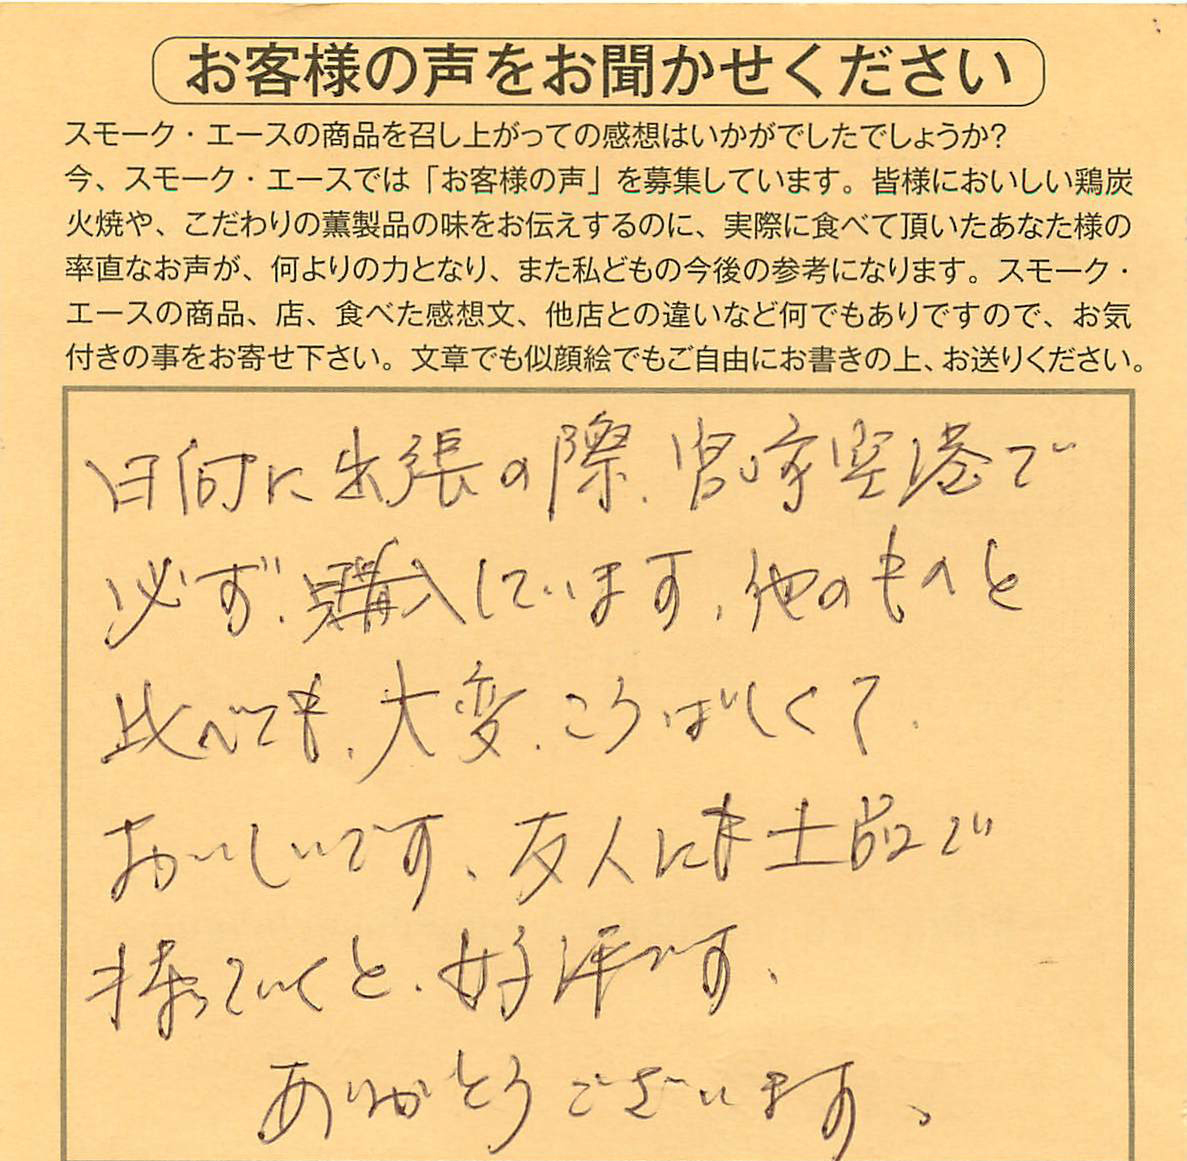 お客様の声をお聞かせください
スモーク・エースの商品を召し上がっての感想はいかがでしたでしょうか?
今、スモーク・エースでは「お客様の声」を募集しています。皆様においしい鶏炭
火焼や、こだわりの薫製品の味をお伝えするのに、実際に食べて頂いたあなた様の
率直なお声が、何よりの力となり、また私どもの今後の参考になります。スモーク・
エースの商品、店、食べた感想文、他店との違いなど何でもありですので、お気
付きの事をお寄せ下さい。文章でも似顔絵でもご自由にお書きの上、お送りください。
日向に出張の際、宮崎空港で
必ず、購入しています。他のものと
比べても、大変、こうばしくて、
おいしいです。友人にも土産で
持っていくと、好評です。
ありがとうございます。